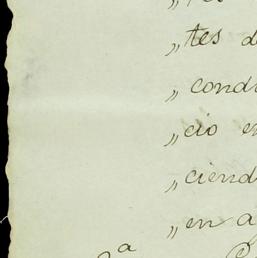 „tes d
„condi
„cio e
„ciend
„en a
2ª